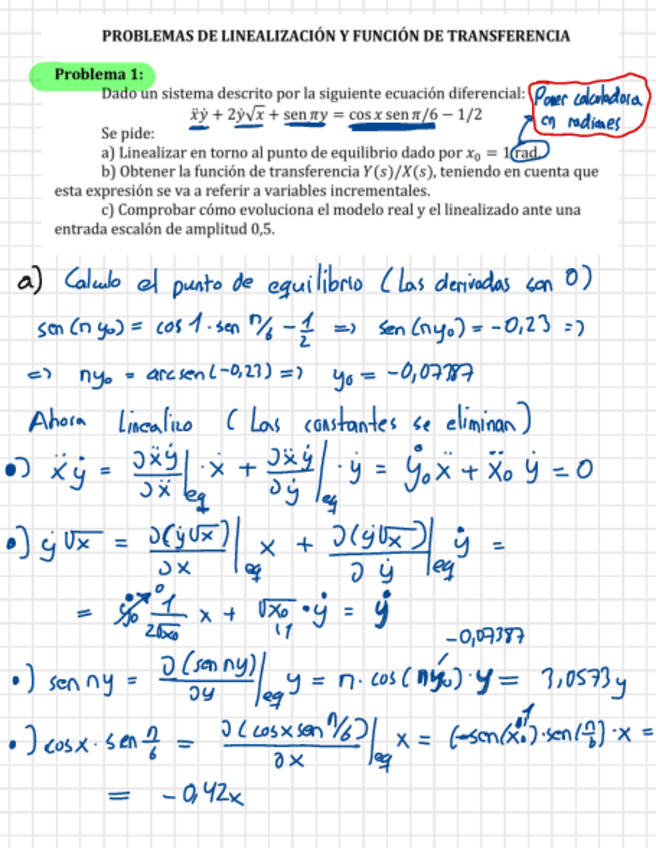 PROBLEMAS DE LINEALIZACIÓN Y FUNCIÓN DE TRANSFERENCIA
Problema 1:
Dado un sistema descrito por la siguiente ecuación diferencial:
ẍẏ + 2ẏ√x + sen πy = cos x sen π/6 − 1/2
Poner calculadora
en radianes
Se pide:
a) Linealizar en torno al punto de equilibrio dado por x₀ = 1 rad.
b) Obtener la función de transferencia Y(s)/X(s), teniendo en cuenta que
esta expresión se va a referir a variables incrementales.
c) Comprobar cómo evoluciona el modelo real y el linealizado ante una
entrada escalón de amplitud 0,5.
a) Calculo el punto de equilibrio (Las derivadas son 0)
sen(πy₀) = cos 1 · sen π/6 − 1/2 => sen(πy₀) = −0,23 =>
=> πy₀ = arcsen(−0,23) => y₀ = −0,07387
Ahora linealizo (Las constantes se eliminan)
•) ẍẏ = ∂ẍẏ/∂ẍ|eq · ẍ + ∂ẍẏ/∂ẏ|eq · ẏ = ẏ₀ẍ + ẍ₀ẏ = 0
•) ẏ√x = ∂(ẏ√x)/∂x|eq x + ∂(ẏ√x)/∂ẏ|eq ẏ =
= ẏ₀ 0 1/2√x₀ x + √x₀ · ẏ = ẏ
11
−0,07387
•) sen πy = ∂(sen πy)/∂y|eq y = π · cos(πy₀) · y = 3,0573y
•) cosx · sen π/6 = ∂(cosx sen π/6)/∂x|eq x = (−sen(x₀) 1 · sen(π/6)) · x =
= −0,42x